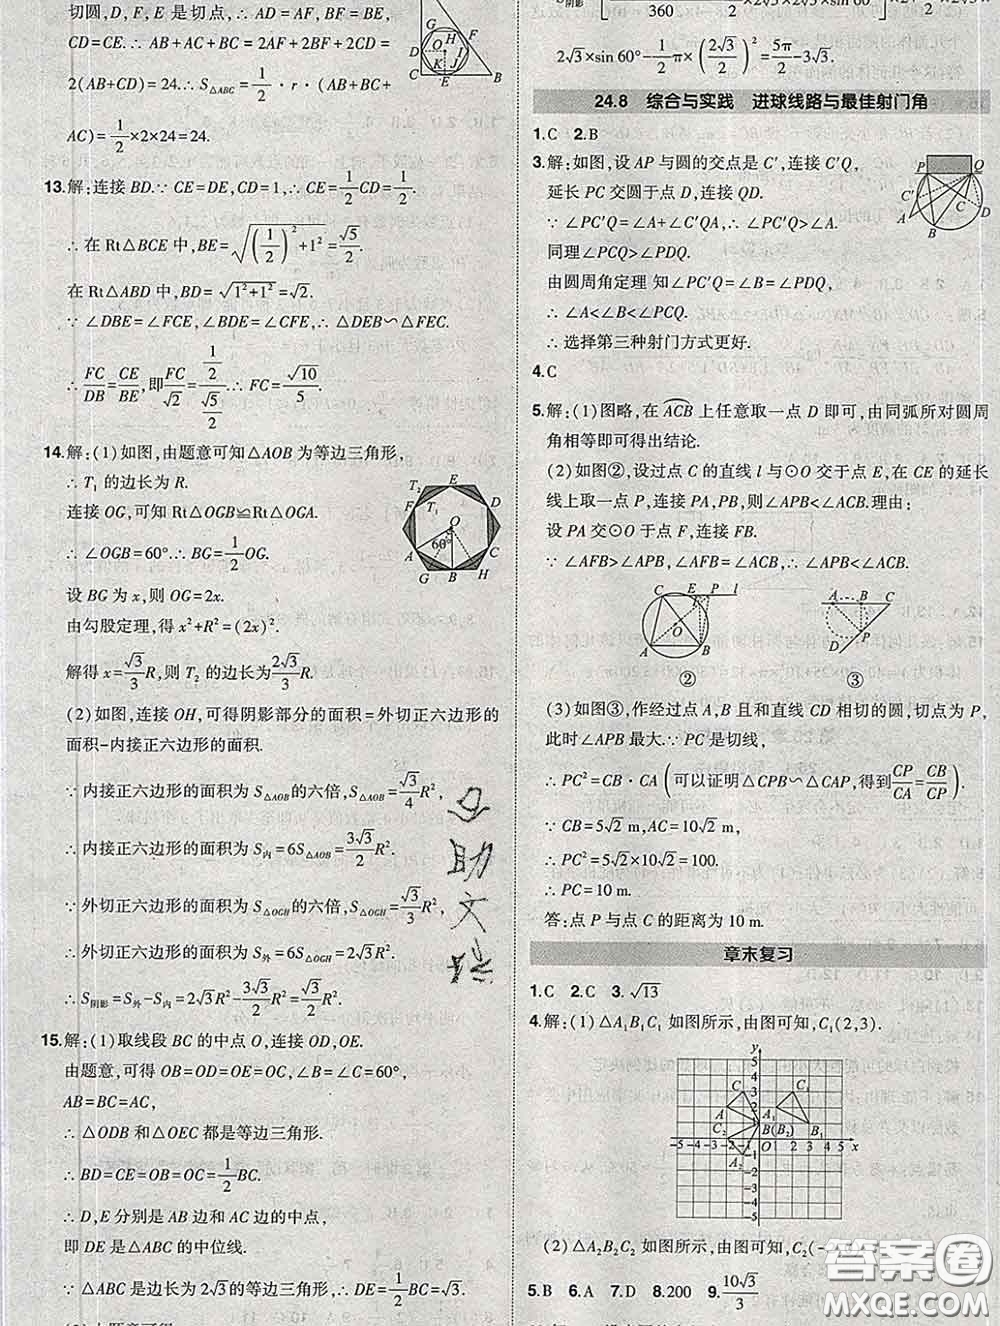 切圆,D,F,E 是切点,∴AD=AF,BF=BE,
CD=CE.∴AB+AC+BC=2AF+2BF+2CD=
2(AB+CD)=24.∴S△ABC=1/2·r·(AB+BC+
AC)=1/2×2×24=24.
13.解:连接 BD.∵CE=DE,CD=1,∴CE=1/2CD=1/2.
∴在 Rt△BCE 中,BE=√((1/2)²+1²)=√5/2.
在 Rt△ABD 中,BD=√(1²+1²)=√2.
∵∠DBE=∠FCE,∠BDE=∠CFE,∴△DEB∽△FEC.
∴FC/DB=CE/BE,即FC/√2=(1/2)/(√5/2).∴FC=√10/5.
14.解:(1)如图,由题意可知△AOB 为等边三角形,
∴T₁ 的边长为 R.
连接 OG,可知 Rt△OGB≌Rt△OGA.
∴∠OGB=60°.∴BG=1/2OG.
设 BG 为 x,则 OG=2x.
由勾股定理,得 x²+R²=(2x)².
解得 x=√3/3R,则 T₂ 的边长为2√3/3R.
(2)如图,连接 OH,可得阴影部分的面积=外切正六边形的
面积-内接正六边形的面积.
∵内接正六边形的面积为 S△AOB的六倍,S△AOB=√3/4R²,
∴内接正六边形的面积为 S内=6S△AOB=3√3/2R².
∵外切正六边形的面积为 S△OGH的六倍,S△OGH=√3/3R²,
∴外切正六边形的面积为 S外=6S△OGH=2√3R².
∴S阴影=S外-S内=2√3R²-3√3/2R²=√3/2R².
15.解:(1)取线段 BC 的中点 O,连接 OD,OE.
由题意,可得 OB=OD=OE=OC,∠B=∠C=60°,
AB=BC=AC.
∴△ODB 和△OEC 都是等边三角形.
∴BD=CE=OB=OC=1/2BC.
∴D,E 分别是 AB 边和 AC 边的中点,
即 DE 是△ABC 的中位线.
∵△ABC 是边长为 2√3 的等边三角形,∴DE=1/2BC=√3.
2√3×sin60°-1/2π×(2√3/3)²=5π/2-3√3.
24.8 综合与实践 进球线路与最佳射门角
1.C 2.B
3.解:如图,设 AP 与圆的交点是 C′,连接 C′Q,
延长 PC 交圆于点 D,连接 QD.
∵∠PC′Q=∠A+∠C′QA,∴∠PC′Q>∠A.
同理∠PCQ>∠PDQ.
由圆周角定理 知∠PC′Q=∠B=∠PDQ,
∴∠A<∠B<∠PCQ.
∴选择第三种射门方式更好.
4.C
5.解:(1)图略,在 ACB 上任意取一点 D 即可,由同弧所对圆周
角相等即可得出结论.
(2)如图②,设过点 C 的直线 l 与⊙O 交于点 E,在 CE 的延长
线上取一点 P,连接 PA,PB,则∠APB<∠ACB.理由:
设 PA 交⊙O 于点 F,连接 FB.
∵∠AFB>∠APB,∠AFB=∠ACB,∴∠APB<∠ACB.
② ③
(3)如图③,作经过点 A,B 且和直线 CD 相切的圆,切点为 P,
此时∠APB 最大.∵PC 是切线,
∴PC²=CB·CA(可以证明△CPB∽△CAP,得到CP/CA=CB/CP).
∵CB=5√2 m,AC=10√2 m,
∴PC²=5√2×10√2=100.
∴PC=10 m.
答:点 P 与点 C 的距离为 10 m.
章末复习
1.C 2.C 3.√13
4.解:(1)△A₁B₁C₁ 如图所示,由图可知,C₁(2,3).
(2)△A₂B₂C₂ 如图所示,由图可知,C₂(-
5.B 6.A 7.D 8.200 9.10√3/3
答案圈
MXQE.COM